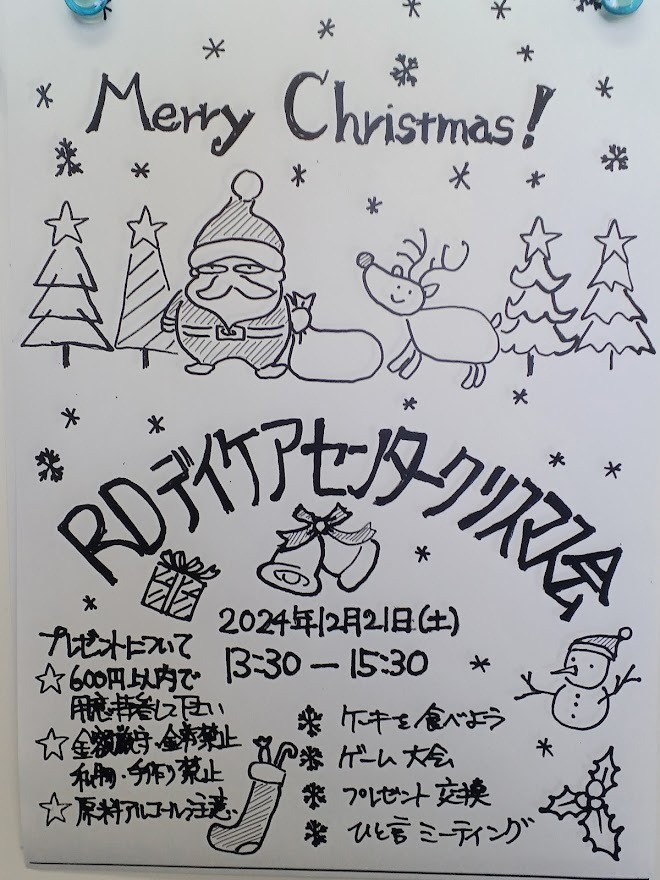 Merry Christmas!
RDデイケアセンタークリスマス会
2024年12月21日(土)
13:30ー15:30
プレゼントについて
☆600円以内で
用意して下さい
☆金額厳守・金券禁止
私物・手作り禁止
☆原料アルコール注意
ケーキを食べよう
ゲーム大会
プレゼント交換
ひと言ミーティング